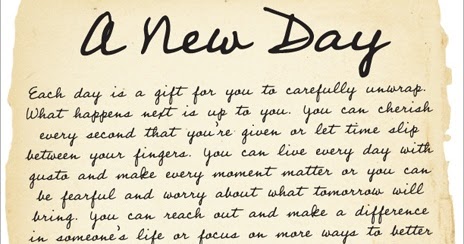 A New Day
Each day is a gift for you to carefully unwrap.
What happens next is up to you. You can cherish
every second that you're given or let time slip
between your fingers. You can live every day with
gusto and make every moment matter or you can
be fearful and worry about what tomorrow will
bring. You can reach out and make a difference
in someone's life or focus on more ways to better